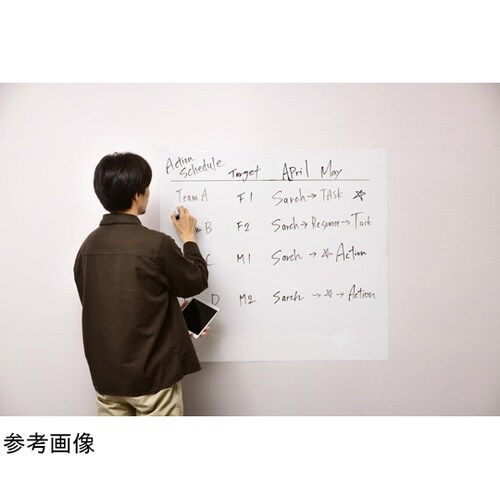 Action
Schedule Target April May
Team A F1 Sarch → TASk ☆
B F2 Sarch → Response → Task
C M1 Sarch → ☆ Action
D M2 Sarch → ☆ → Action
参考画像